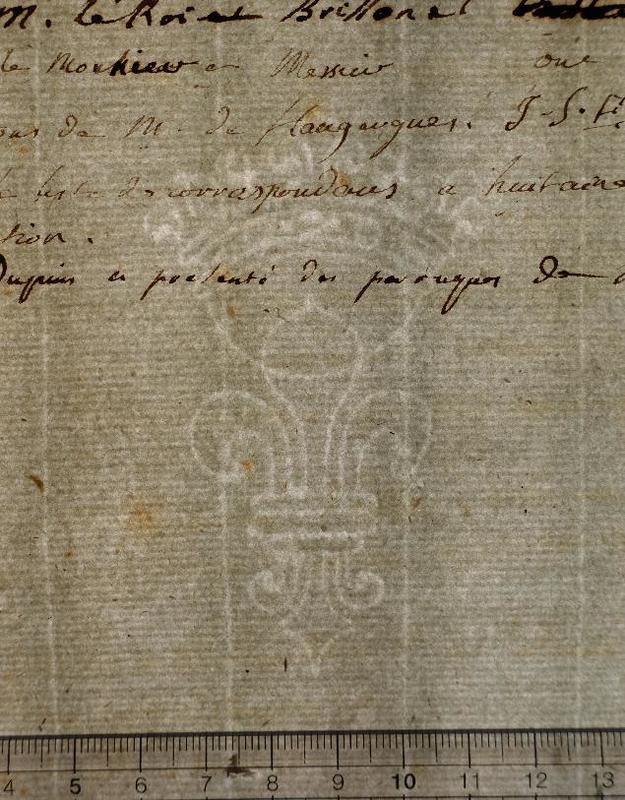 M. le Roi et Brisson et
le Monsieur Messier oui
ous de M. de flaugergues. J-S.
liste de correspondans a huitaine
sion.
Dupuis a presenté des perruques de
4 5 6 7 8 9 10 11 12 13